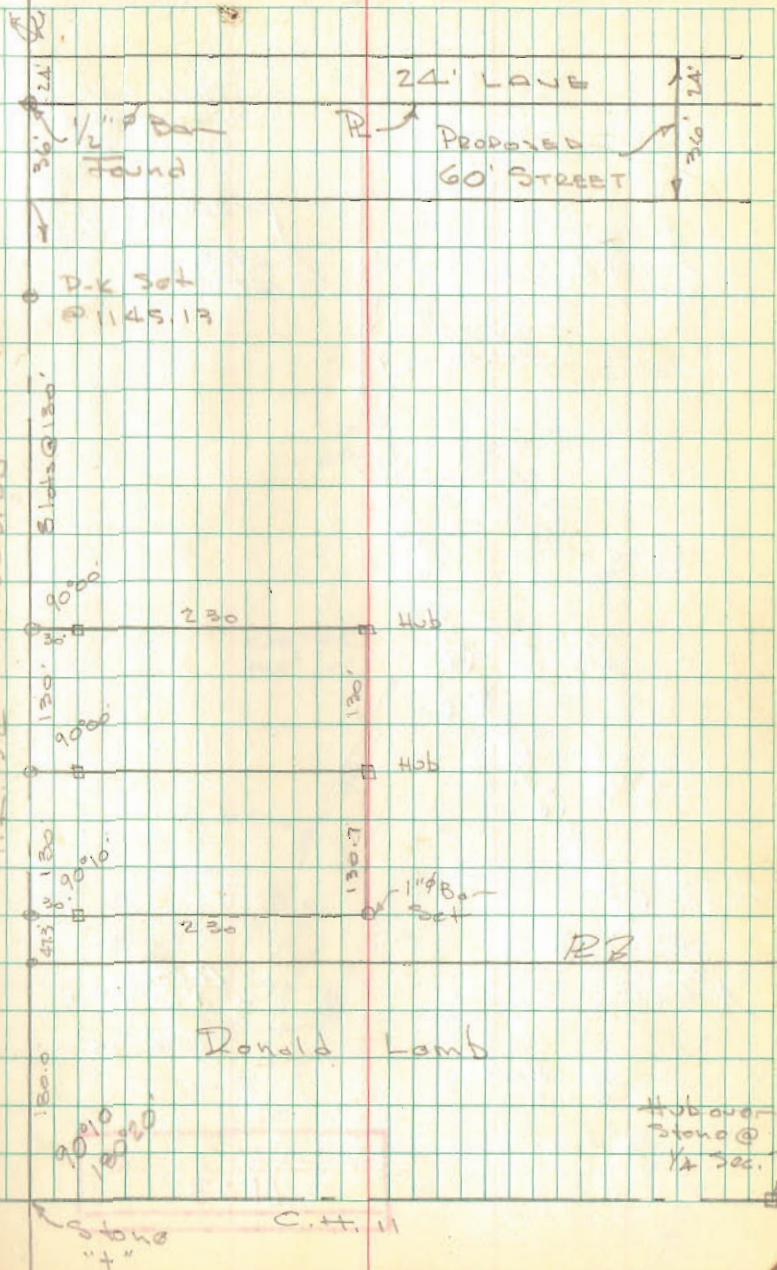 24'
24' LANE
24'
36'
1/2" ⌀ Bar
Found
PL
PROPOSED
60' STREET
36'
P-K Set
@ 1145.13
8 lots @ 130'
90°00'
30'
230
Hub
130'
130'
90°00'
Hub
130'
130.7
90°10'
30'
1" ⌀ Bar
Set
230
47.3
PL
Donald Lamb
180.0
90°10'
180°20'
Hub over
Stone @
1/4 Sec.
C.H. 11
Stone
"+"